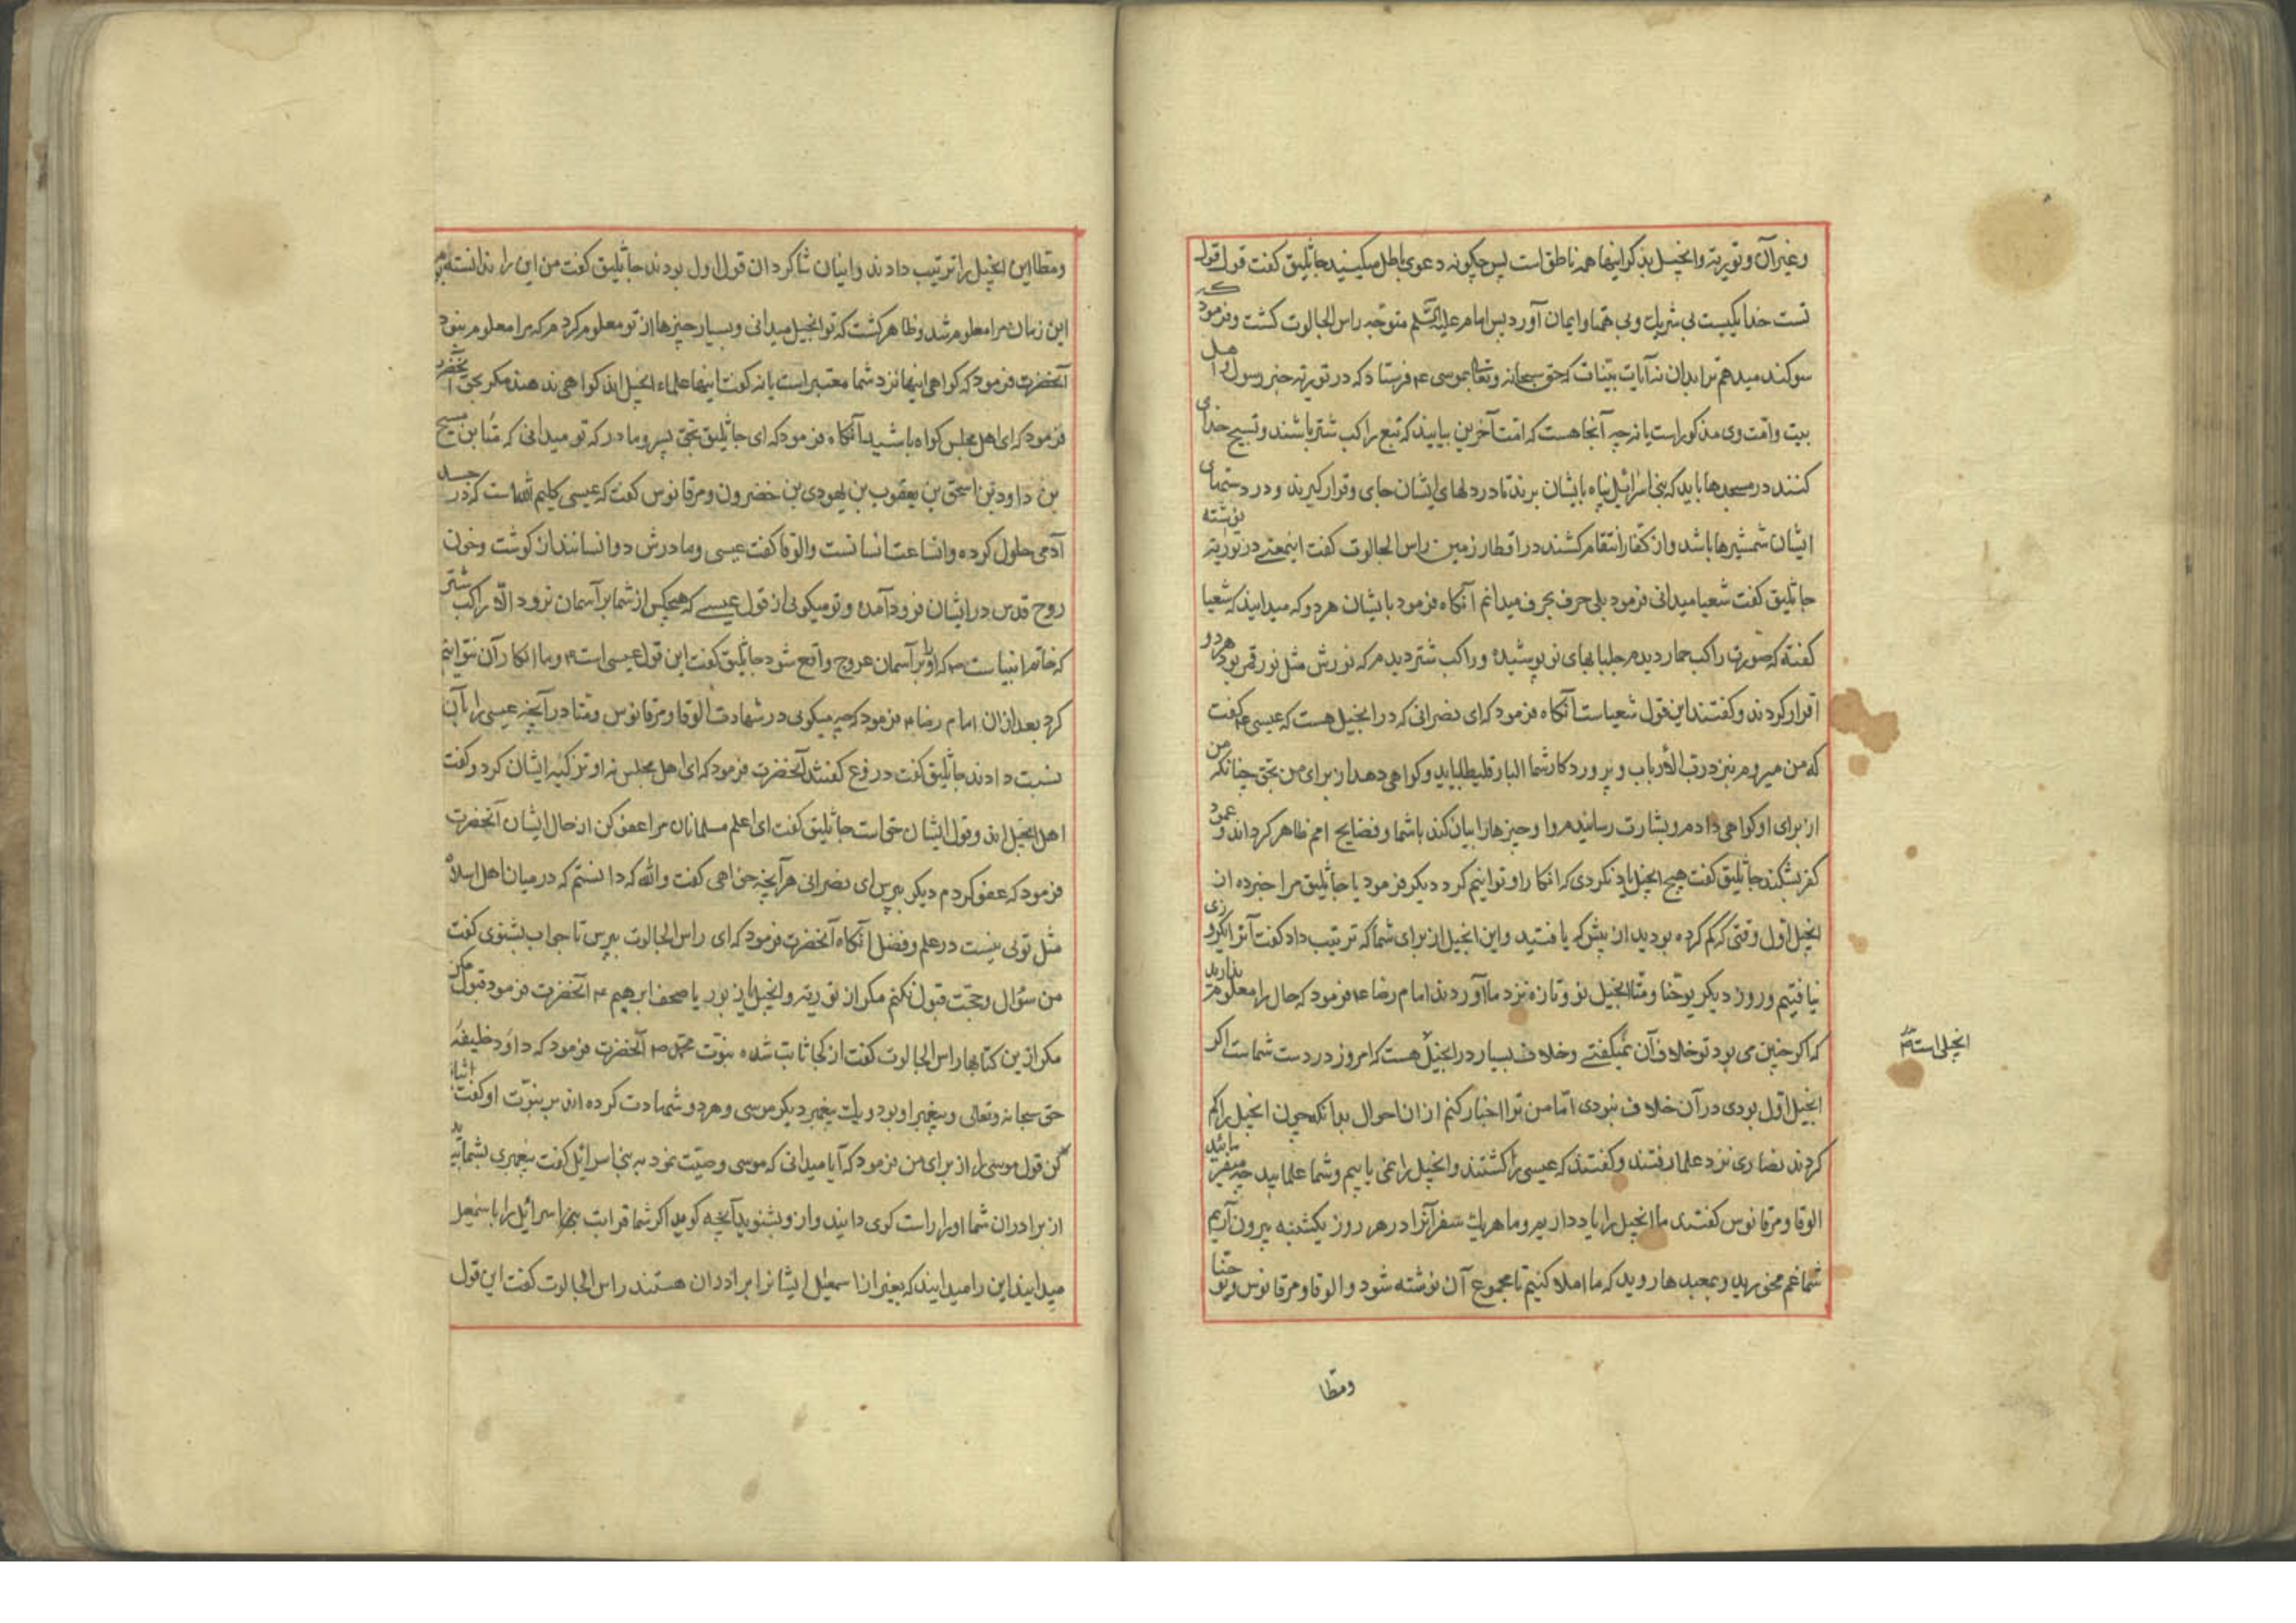 وغیر آن و توریة و انجیل بذکر اینها همه ناطق است پس چکونه دعوی باطل میکنید جاثلیق کفت قول قول
تست خدا یکیست بی شریک و بی همتا و ایمان آورد پس امام علیه السلم متوجه راس الجالوت کشت و فرمود که
سوکند میدهم ترا بدان نه آیات بینات که حق سبحانه و تعالی بموسی ع فرستاد که در توریة خبر رسول و اهل
بیت و امت وی مذکور است یا نه چه آنجا هست که امت آخرین بیایند که تبع راکب شتر باشند و تسبیح خدای
کنند در مسجدها باید که بنی اسرائیل پناه بایشان برند تا در دلهای ایشان جای و قرار کیرند و در دستهای
ایشان شمشیرها باشد و از کفار انتقام کشند در اقطار زمین راس الجالوت کفت اینمعنی در توریة نوشته
جاثلیق کفت شعیا میدانی فرمود بلی حرف بحرف میدانم آنکاه فرمود بایشان هر دو که میدانید که شعیا
کفته که صورت راکب حمار دیدم جلبابهای نو پوشیده و راکب شتر دیدم که نورش مثل نور قمر بود هر دو
اقرار کردند و کفتند این قول شعیاست آنکاه فرمود که ای نصرانی که در انجیل هست که عیسی ع کفت
که من میروم بنزد رب الارباب و پروردکار شما البارقلیطا بیاید و کواهی دهد از برای من بحق چنانکه من
از برای او کواهی دادم و بشارت رسانیدم و او چیزها را بیان کند باشما و فضایح امم ظاهر کرداند و عمود
کفر بشکند جاثلیق کفت هیچ انجیل یاد نکردی که انکار او توانیم کرد دیکر فرمود یا جاثلیق مرا خبر ده از
انجیل اول وقتی که کم کرده بودید از پیش که یافتید و این انجیل از برای شما که ترتیب داد کفت آنرا یکروزی
نیافتیم و روز دیکر یوحنا و متا انجیل نو و تازه نزد ما آوردند امام رضا ع فرمود که حال را معلوم ندارید
که اکر چنین می بود تو خلاف آن نمیکفتی و خلاف بسیار در انجیل هست که امروز در دست شماست اکر
انجیلی است
انجیل اول بودی در آن خلاف نبودی اما من ترا اخبار کنم از ان احوال بدانکه چون انجیل را کم
کردند نصاری نزد علما رفتند و کفتند که عیسی را کشتند و انجیل را نمی یابیم و شما علمایید چه میفرمائید
الوقا و مرقانوس کفتند ما انجیل را یاد داریم و ما هر یک سفر آنرا در هر روز یکشنبه بیرون آریم
شما غم مخورید و بمعبدها روید که ما املا کنیم تا مجموع آن نوشته شود و الوقا و مرقانوس و یوحنا
ومطا
ومطا این انجیل را ترتیب دادند و اینان شاکردان قول اول بودند جاثلیق کفت من این را ندانسته بودم
این زمان مرا معلوم شد و ظاهر کشت که تو انجیل میدانی و بسیار چیزها از تو معلوم کردم که مرا معلوم نبود
آنحضرت فرمود که کواهی اینها نزد شما معتبر است یا نه کفت اینها علماء انجیل اند کواهی ندهند مکر بحق آنحضرت
فرمود که ای اهل مجلس کواه باشید آنکاه فرمود که ای جاثلیق بحق پسر و مادر که تو میدانی که متا بن مسیح
بن داود بن اسحق بن یعقوب بن یهودی بن خضرون و مرقانوس کفت که عیسی کلیم الله است که در جسد
آدمی حلول کرده و انساعت انسانست و الوقا کفت عیسی و مادرش دو انسانند از کوشت و خون
روح قدس در ایشان فرود آمده و تو میکوئی از قول عیسی که هیچکس از شما بر آسمان نرود الا راکب شتر
که خاتم انبیاست ص که او را بر آسمان عروج واقع شود جاثلیق کفت این قول عیسی است ع و ما انکار آن نتوانیم
کرد بعد از ان امام رضا ع فرمود که چه میکوئی در شهادت الوقا و مرقانوس و متا در آنچه عیسی را بآن
نسبت دادند جاثلیق کفت دروغ کفتند آنحضرت فرمود که ای اهل مجلس نه او تزکیه ایشان کرد و کفت
اهل انجیل اند و قول ایشان حق است جاثلیق کفت ای اعلم مسلمانان مرا عفو کن از حال ایشان آنحضرت
فرمود که عفو کردم دیکر بپرس ای نصرانی هر آنچه خواهی کفت والله که دانستم که در میان اهل اسلام
مثل توئی نیست در علم و فضل آنکاه آنحضرت فرمود که ای راس الجالوت بپرس تا جواب بشنوی کفت
من سؤال و حجت قبول نکنم مکر از توریة و انجیل از زبور یا صحف ابرهیم ع آنحضرت فرمود قبول مکن
مکر ازین کتابها راس الجالوت کفت از کجا ثابت شده نبوت محمد ص آنحضرت فرمود که داود خلیفه
حق سبحانه و تعالی و پیغمبر او بود و یک پیغمبر دیکر موسی و هر دو شهادت کرده اند بر نبوت او کفت اثبات
کن قول موسی را از برای من فرمود که آیا میدانی که موسی وصیت نمود به بنی اسرائیل کفت پیغمبری بشما آید
از برادران شما او را راست کوی دانید و از و بشنوید آنچه کوید اکر شما قرابت بنی اسرائیل را با سمعیل
میدانید این را میدانید که بغیر از اسمعیل ایشانرا برادران هستند راس الجالوت کفت این قول